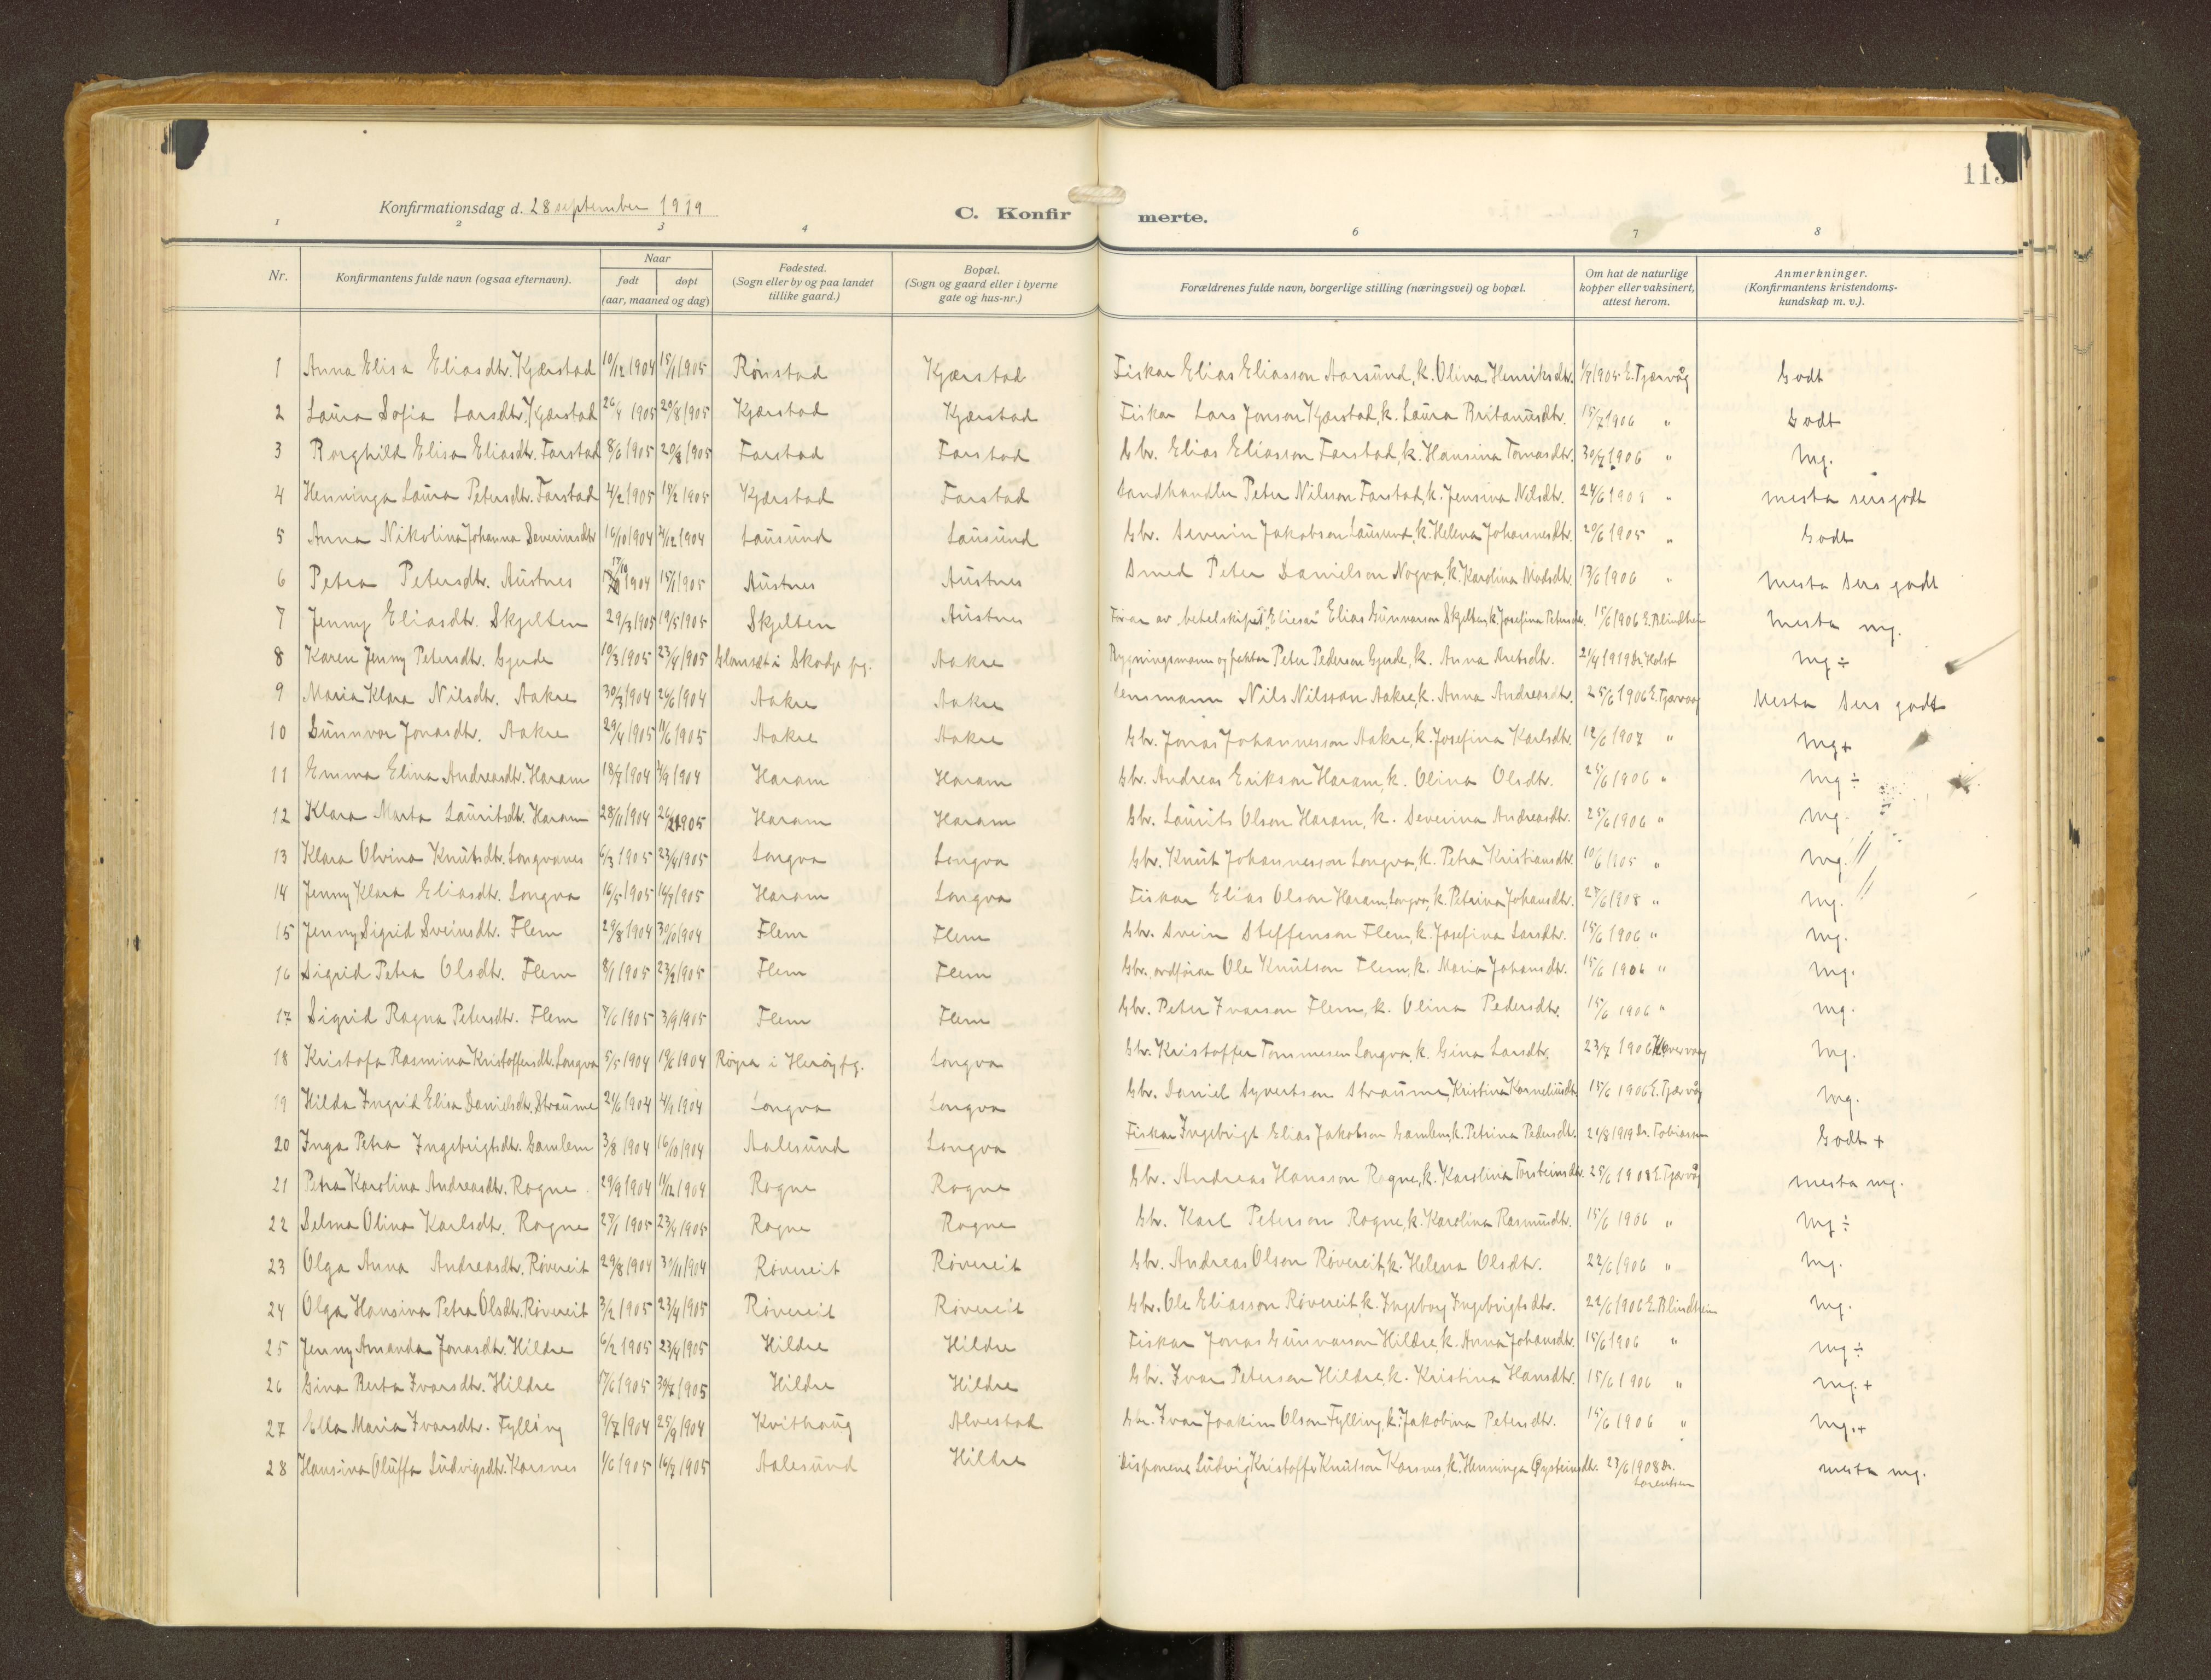 113
Konfirmationsdag d. 28 september 1919
C. Konfirmerte.
1 2 3 4 6 7 8
Nr. Konfirmantens fulde navn (ogsaa efternavn). Naar født døpt (aar, maaned og dag) Fødested. (Sogn eller by og paa landet tillike gaard.) Bopæl. (Sogn og gaard eller i byerne gate og hus-nr.) Forældrenes fulde navn, borgerlige stilling (næringsvei) og bopæl. Om hat de naturlige kopper eller vaksinert, attest herom. Anmerkninger. (Konfirmantens kristendoms-kundskap m. v.).
1 Anna Elisa Eliasdtr. Kjærstad 10/12 1904 15/1 1905 Rønstad Kjærstad Fiskar Elias Eliasson Aarsund, k. Olina Henriksdtr. 1/9 1905 E. Tjærvåg Godt
2 Laura Sofia Larsdtr. Kjærstad 26/4 1905 20/8 1905 Kjærstad Kjærstad Fiskar Lars Jonson Kjærstad, k. Laura Britanusdtr. 15/7 1906 " Godt
3 Borghild Elisa Eliasdtr. Farstad 8/6 1905 20/8 1905 Farstad Farstad Gbr. Elias Eliasson Farstad, k. Hansina Tomasdtr. 30/7 1906 " Mg.
4 Henninga Laura Petersdtr. Farstad 4/2 1905 19/2 1905 Kjærstad Farstad Landhandler Peter Nilsson Farstad, k. Jensina Nilsdtr. 24/6 " mesta sers godt
5 Anna Nikolina Johanna Severinsdtr 16/10 1904 1904 Lausund Lausund Gbr. Severin Jakobson Lausund, k. Helena Johannesdtr. 20/6 1905 " Godt
6 Petra Petersdtr. Austnes 17/10 1904 15/1 1905 Austnes Austnes Smed Peter Danielson Nogva, k. Karolina Madsdtr. 13/6 1906 " Mesta sers godt
7 Jenny Eliasdtr. Skjelten 29/3 1905 19/5 1905 Skjelten Austnes Förar av betelskipet "Elieser" Elias Gunnarson Skjelten, k. Josefina Petersdtr. 15/6 1906 E. Blindheim Mesta mg.
8 Karen Jenny Petersdtr. Gjerde 10/3 1905 23/4 1905 Glomset i Skodje pg. Aakre Bygningsmann og fektar Peter Pederson Gjerde, k. Anna Aretsdtr. 21/4 1919 Dr. Holst Mg ÷
9 Maria Klara Nilsdtr. Aakre 30/3 1904 26/6 1904 Aakre Aakre Lensmann Nils Nilsson Aakre, k. Anna Andreasdtr. 25/6 1906 E. Tjærvaag Mesta sers godt
10 Gunnvor Jonasdtr. Aakre 29/4 1905 11/6 1905 Aakre Aakre Gbr. Jonas Johannesson Aakre, k. Josefina Karlsdtr. 12/6 1907 " Mg+
11 Emma Elina Andreasdtr. Haram 18/7 1904 4/9 1904 Haram Haram Gbr. Andreas Erikson Haram, k. Olina Olsdtr. 25/6 1906 " Mg ÷
12 Klara Marta Lauritsdtr. Haram 28/11 1904 1905 Haram Haram Gbr. Laurits Olson Haram, k. Severina Andreasdtr. 25/6 1906 " Mg.
13 Klara Olvina Knutsdtr. Longvanes 6/3 1905 23/4 1905 Longva Longva Gbr. Knut Johannesson Longva, k. Petra Kristiansdtr. 10/6 1905 " Mg. //
14 Jenny Klara Eliasdtr. Longva 16/5 1905 1905 Haram Longva Fiskar Elias Olson Haram, Longva, k. Petrina Johansdtr. 25/6 1908 " Mg. //
15 Jenny Sigrid Sveinsdtr. Flem 29/8 1904 30/10 1904 Flem Flem Gbr. Svein Steffenson Flem, k. Josefina Larsdtr. 15/6 1906 " Mg.
16 Sigrid Petra Olsdtr. Flem 8/1 1905 23/4 1905 Flem Flem Gbr., ordförar Ole Knutson Flem, k. Maria Johansdtr. 15/6 1906 " Mg.
17 Sigrid Ragna Petersdtr. Flem 7/6 1905 3/9 1905 Flem Flem Gbr. Peter Ivarson Flem, k. Olina Pedersdtr. 15/6 1906 " Mg.
18 Kristofa Rasmina Kristoffersdtr. Longva 5/5 1904 19/6 1904 Røyra i Herøy pg. Longva Gbr. Kristoffer Tommesen Longva, k. Gina Larsdtr. 23/7 1906 Mg.
19 Hilda Ingrid Elisa Danielsdtr. Straume 21/6 1904 4/9 1904 Longva Longva Gbr. Daniel Syvertsen Straume, Kristina Korneliusdtr 15/6 1906 E. Tjærvåg Mg.
20 Inga Petra Ingebrigtsdtr. Gamlem 3/8 1904 16/10 1904 Aalesund Longva Fiskar Ingebrigt Elias Jakobson Gamlem, k. Petrina Pedersdtr. 21/8 1919 Dr. Tobiassen Godt +
21 Petra Karolina Andreasdtr. Rogne 29/9 1904 11/12 1904 Rogne Rogne Gbr. Andreas Hansson Rogne, k. Karolina Torsteinsdtr. 25/6 1908 E. Tjærvåg mesta mg.
22 Selma Olina Karlsdtr. Rogne 1905 23/4 1905 Rogne Rogne Gbr. Karl Peterson Rogne, k. Karolina Rasmusdtr. 15/6 1906 " Mg ÷
23 Olga Anna Andreasdtr. Røvereit 29/8 1904 30/11 1904 Røvereit Røvereit Gbr. Andreas Olson Røvereit, k. Helena Olsdtr. 22/6 1906 " Mg.
24 Olga Hansina Petra Olsdtr. Røvereit 3/2 1905 23/4 1905 Røvereit Røvereit Gbr. Ole Eliasson Røvereit, k. Ingeborg Ingebrigtsdtr. 22/6 1906 E. Blindheim Mg.
25 Jenny Amanda Jonasdtr. Hildre 6/2 1905 23/4 1905 Hildre Hildre Fiskar Jonas Gunnarson Hildre, k. Anna Johansdtr. 15/6 1906 " Mg ÷
26 Gina Berta Ivarsdtr. Hildre 17/6 1905 30/7 1905 Hildre Hildre Gbr. Ivar Peterson Hildre, k. Kristina Hansdtr. 15/6 1906 " Mg. +
27 Ella Maria Ivarsdtr. Fylling 9/7 1904 25/9 1904 Kvithaug Alvestad Gbr. Ivar Joakim Olson Fylling, k. Jakobina Petersdtr. 15/6 1906 " Mg. +
28 Hansina Oluffa Ludvigsdtr. Korsnes 1/6 1905 16/7 1905 Aalesund Hildre Disponent Ludvig Kristoffer Knutson Korsnes, k. Henninga Øysteinsdtr. 23/6 1908 Dr. Lorentsen mesta mg.